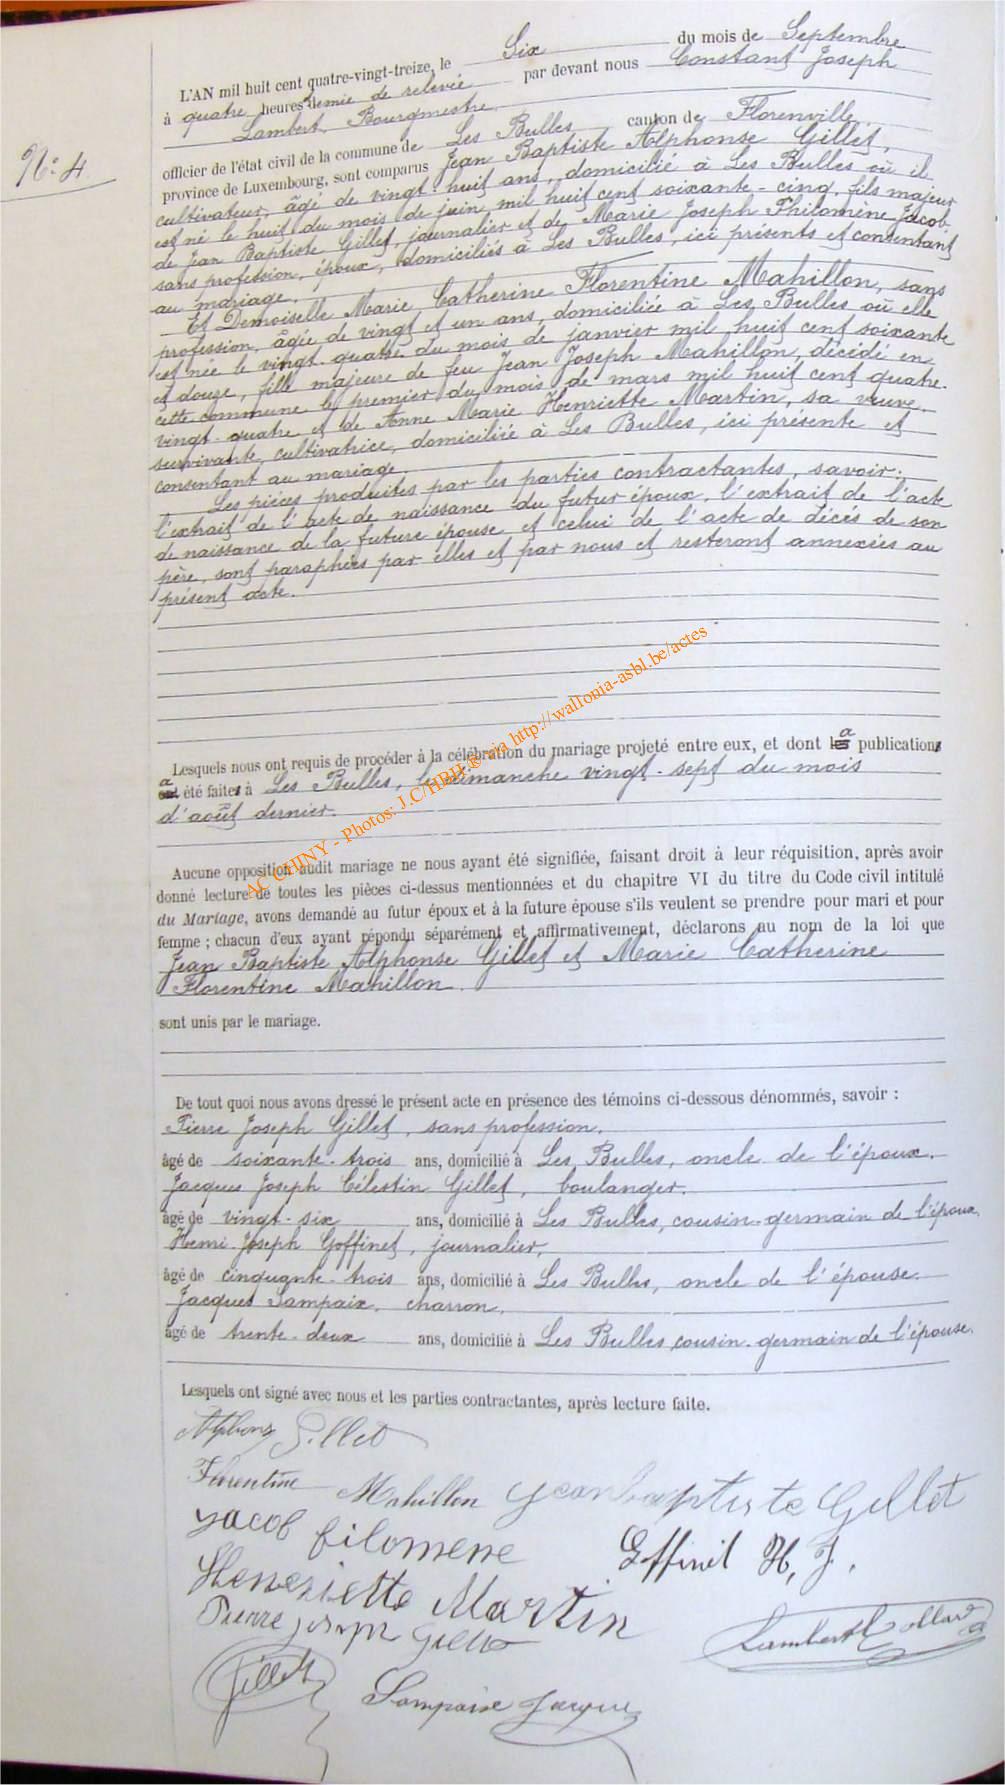 N°. 4.
L'AN mil huit cent quatre-vingt-treize, le Six du mois de Septembre
à quatre heures demie de relevée par devant nous Constant Joseph
Lambert, Bourgmestre
officier de l'état civil de la commune de Les Bulles canton de Florenville,
province de Luxembourg, sont comparus Jean Baptiste Alphonse Gillet,
cultivateur, âgé de vingt-huit ans, domicilié à Les Bulles où il
est né le huit du mois de juin mil huit cent soixante-cinq, fils majeur
de Jean Baptiste Gillet, journalier et de Marie Joseph Philomène Jacob,
sans profession, époux, domiciliés à Les Bulles, ici présents et consentant
au mariage.
Et Demoiselle Marie Catherine Florentine Mahillon, sans
profession, âgée de vingt et un ans, domiciliée à Les Bulles où elle
est née le vingt-quatre du mois de janvier mil huit cent soixante
et douze, fille majeure de feu Jean Joseph Mahillon, décidé en
cette commune le premier du mois de mars mil huit cent quatre-
vingt-quatre et de Anne Marie Henriette Martin, sa veuve
survivante, cultivatrice, domiciliée à Les Bulles, ici présente et
consentant au mariage.
Les pièces produites par les parties contractantes, savoir:
l'extrait de l'acte de naissance du futur époux, l'extrait de l'acte
de naissance de la future épouse et celui de l'acte de décès de son
père, sont paraphées par elles et par nous et resteront annexées au
présent acte.
Lesquels nous ont requis de procéder à la célébration du mariage projeté entre eux, et dont les a publications
ont a été faites à Les Bulles, le dimanche vingt-sept du mois
d'août dernier.
Aucune opposition audit mariage ne nous ayant été signifiée, faisant droit à leur réquisition, après avoir
donné lecture de toutes les pièces ci-dessus mentionnées et du chapitre VI du titre du Code civil intitulé
du Mariage, avons demandé au futur époux et à la future épouse s'ils veulent se prendre pour mari et pour
femme; chacun d'eux ayant répondu séparément et affirmativement, déclarons au nom de la loi que
Jean Baptiste Alphonse Gillet et Marie Catherine
Florentine Mahillon.
sont unis par le mariage.
De tout quoi nous avons dressé le présent acte en présence des témoins ci-dessous dénommés, savoir :
Pierre Joseph Gillet, sans profession,
âgé de soixante-trois ans, domicilié à Les Bulles, oncle de l'époux.
Jacques Joseph Célestin Gillet, boulanger.
âgé de vingt-six ans, domicilié à Les Bulles, cousin-germain de l'époux.
Henri Joseph Goffinet, journalier,
âgé de cinquante-trois ans, domicilié à Les Bulles, oncle de l'épouse.
Jacques Lampaix, charron,
âgé de trente-deux ans, domicilié à Les Bulles cousin-germain de l'épouse.
Lesquels ont signé avec nous et les parties contractantes, après lecture faite.
Alphons Gillet
Florentine Mahillon Jean baptiste Gillet
Jacob filomene Goffinet H, J.
Henriette Martin
Pierre joseph Gillet Lambert Collard
Gillet
Lampaix Jacques
AC CHINY - Photos: J.C/HBH ® via http://wallonia-asbl.be/actes